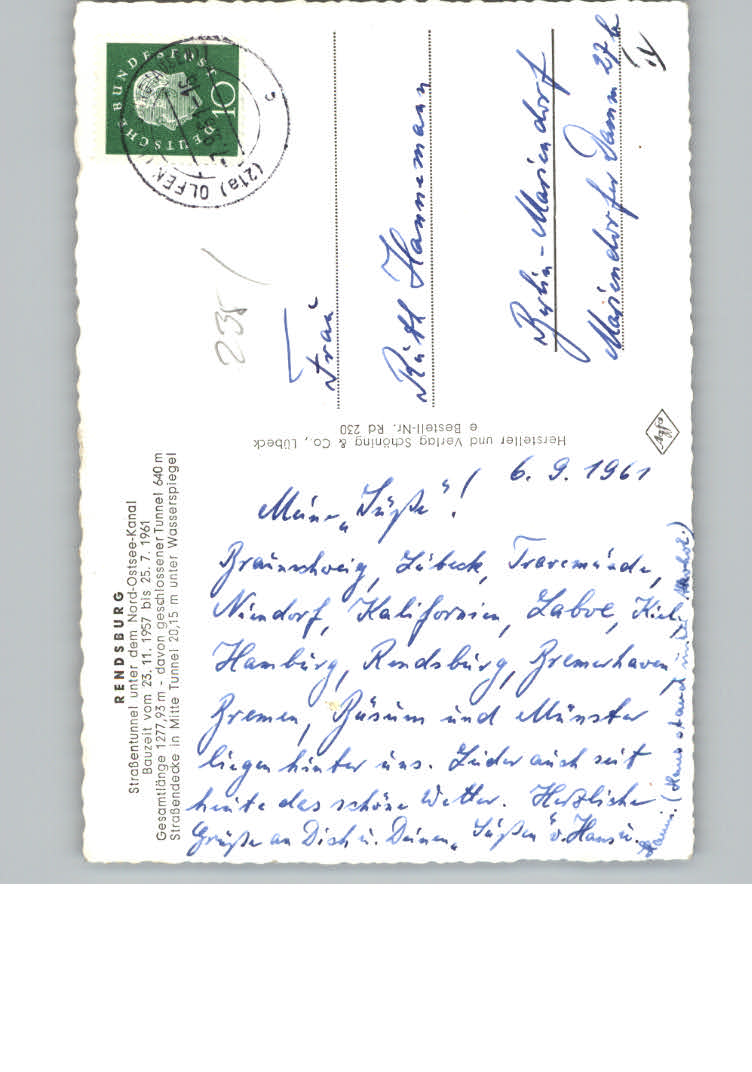 RENDSBURG
Straßentunnel unter dem Nord-Ostsee-Kanal
Bauzeit vom 23. 11. 1957 bis 25. 7. 1961
Gesamtlänge 1277,93 m - davon geschlossener Tunnel 640 m
Straßendecke in Mitte Tunnel 20,15 m unter Wasserspiegel
6. 9. 1961
Meine „Süße"!
Braunschweig, Lübeck, Travemünde,
Niendorf, Kalifornien, Laboe, Kiel,
Hamburg, Rendsburg, Bremerhaven,
Bremen, Büsum und Münster
liegen hinter uns. Leider auch seit
heute das schöne Wetter. Herzliche
Grüße an Dich u. Deinen „Süßen" v. Hans u.
Hanni. (Hans stand unter Alkohol.)
Hersteller und Verlag Schöning & Co., Lübeck
e Bestell-Nr. Rd 230
Agfa
DEUTSCHE BUNDESPOST
10
(21a) OLFEN
235
Frau
Ruth Hannemann
Berlin-Mariendorf
Mariendorfer Damm 27